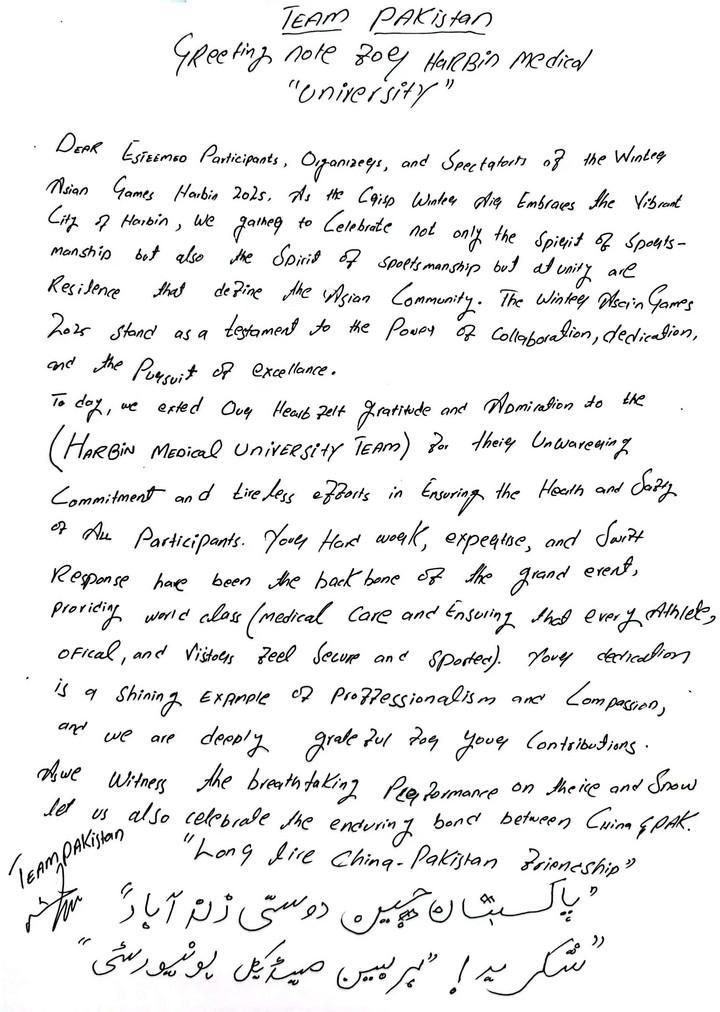 TEAM PAKistan
GReeting note For HARBin Medical
"University"
DEAR ESTEEMED Participants, Organizers, and Spectators of the Winter
Asian Games Harbin 2025. As the Crisp Winter Air Embraces the Vibrant
City of Harbin, We gather to Celebrate not only the Spirit of Sports-
manship but also the Spirit of sportsmanship but at unity are
Resilence that define the Asian Community. The Winter Ascin Games
2025 stand as a testament to the Power of Collaboration, dedication,
and the Pursuit of excellance.
To day, we exted Our Heart Felt gratitude and Admiration to the
(HARBIN MEDICAL UNIVERSITY TEAM) For their Unwavering
Commitment and tireless efforts in Ensuring the Health and Safty
of ALL Participants. Your Hard work, expertise, and Swift
Response have been the back bone of the grand event,
Providing world class (medical Care and Ensuring that every Athlete,
OFical, and Vistors Feel Secure and Sported). Your dedication
is a Shining EXAMPLE of Proffessionalism and Compassion,
and we are deeply grateful For Your Contributions.
As we Witness the breathtaking Performance on the ice and Snow
let us also celebrate the enduring bond between China & PAK.
TEAM PAKistan
"Long live China-Pakistan Friendship"
"پاکستان چین دوستی زندہ آباد"
"شکریہ! "ہربین میڈیکل یونیورسٹی"